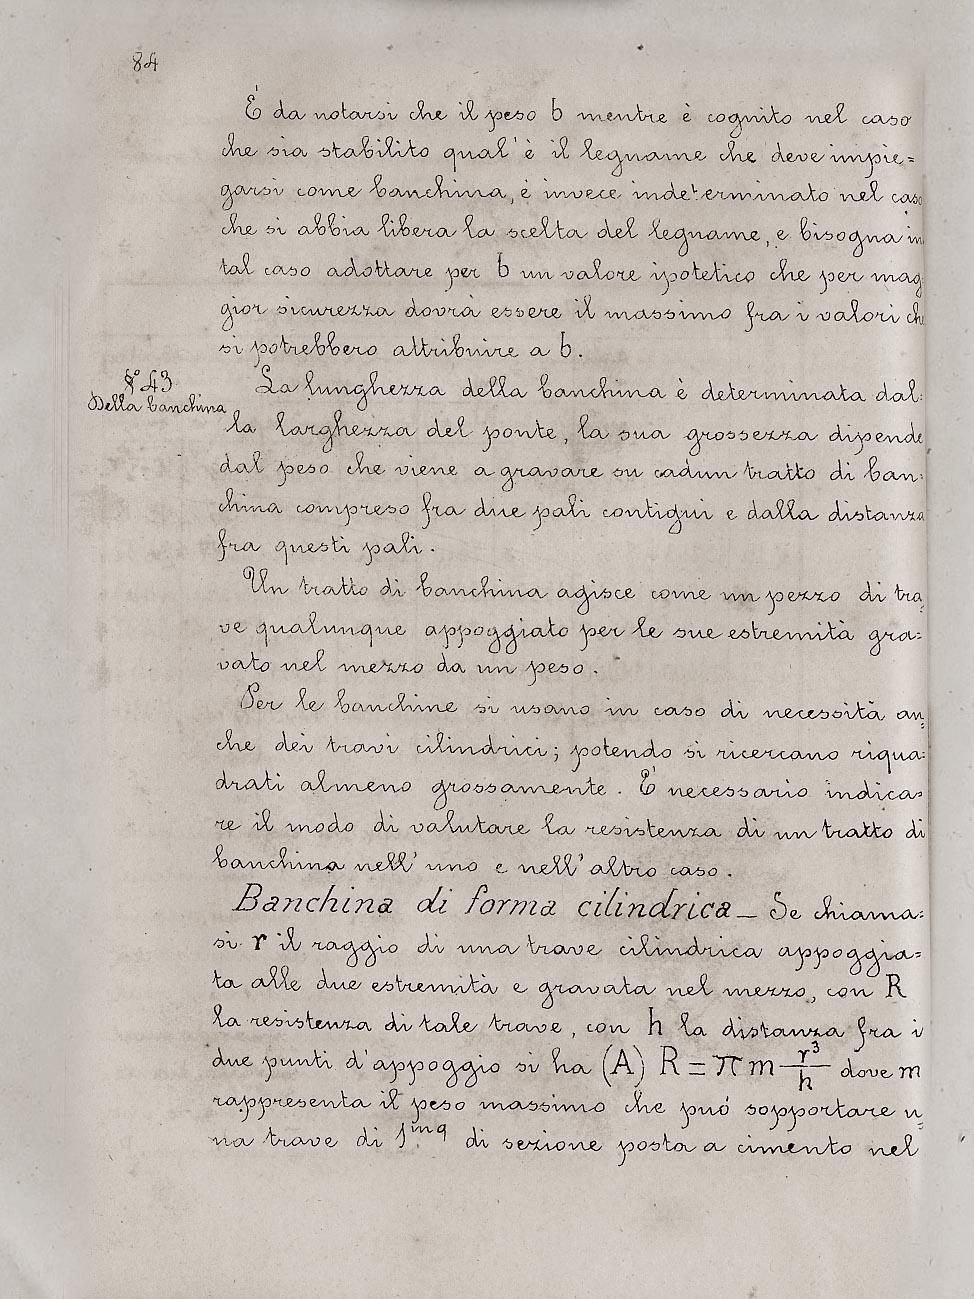 84
È da notarsi che il peso b mentre è cognito nel caso
che sia stabilito qual'è il legname che deve impie=
garsi come banchina, è invece indeterminato nel caso
che si abbia libera la scelta del legname, e bisogna in
tal caso adottare per b un valore ipotetico che per mag
gior sicurezza dovrà essere il massimo fra i valori che
si potrebbero attribuire a b.
§º 43
Della banchina
La lunghezza della banchina è determinata dal:
la larghezza del ponte, la sua grossezza dipende
dal peso che viene a gravare su cadun tratto di ban:
china compreso fra due pali contigui e dalla distanza
fra questi pali.
Un tratto di banchina agisce come un pezzo di tra=
ve qualunque appoggiato per le sue estremità gra:
vato nel mezzo da un peso.
Per le banchine si usano in caso di necessità an=
che dei travi cilindrici; potendo si ricercano riqua:
drati almeno grossamente. È necessario indica=
re il modo di valutare la resistenza di un tratto di
banchina nell'uno e nell'altro caso.
Banchina di forma cilindrica_ Se chiama:
si r il raggio di una trave cilindrica appoggia=
ta alle due estremità e gravata nel mezzo, con R
la resistenza di tale trave, con h la distanza fra i
due punti d'appoggio si ha (A) R = π m r³/h dove m
rappresenta il peso massimo che può sopportare u=
na trave di 1mq di sezione posta a cimento nel